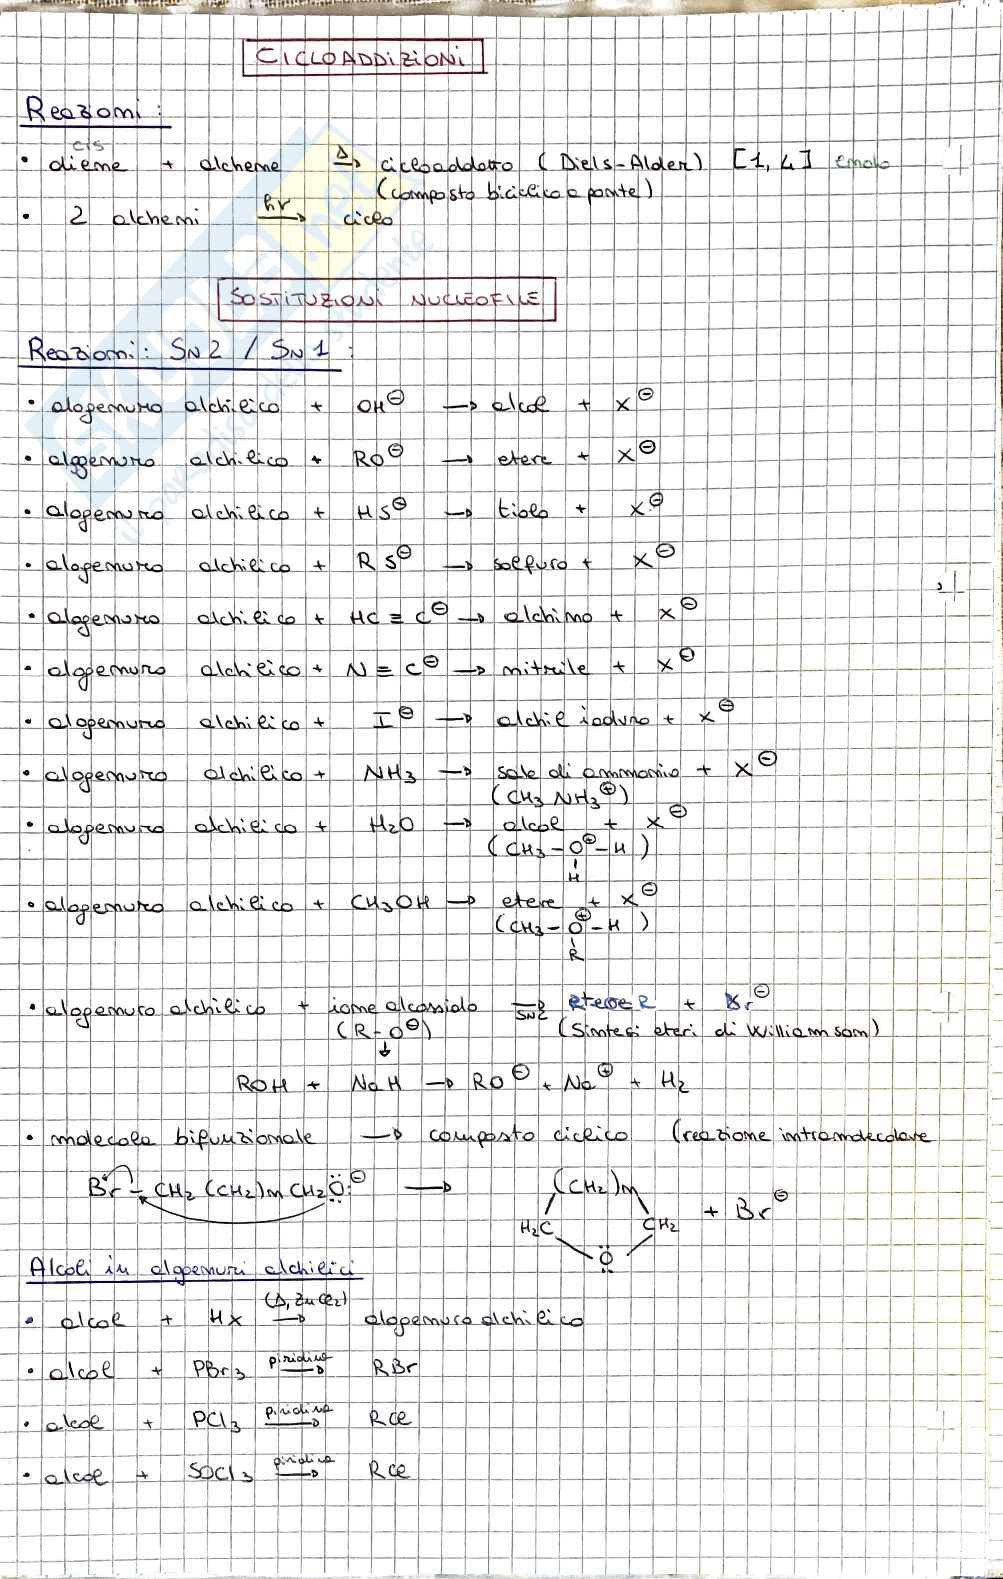 CICLOADDIZIONI
Reazioni:
cis
• diene + alchene Δ→ cicloaddotto (Diels-Alder) [1,4] endo
(composto biciclico a ponte)
• 2 alcheni hν→ ciclo
SOSTITUZIONI NUCLEOFILE
Reazioni: SN2 / SN1:
• alogenuro alchilico + OH⊖ → alcol + X⊖
• alogenuro alchilico + RO⊖ → etere + X⊖
• alogenuro alchilico + HS⊖ → tiolo + X⊖
• alogenuro alchilico + RS⊖ → solfuro + X⊖
• alogenuro alchilico + HC≡C⊖ → alchino + X⊖
• alogenuro alchilico + N≡C⊖ → nitrile + X⊖
• alogenuro alchilico + I⊖ → alchil ioduro + X⊖
• alogenuro alchilico + NH3 → sale di ammonio + X⊖
(CH3NH3⊕)
• alogenuro alchilico + H2O → alcol + X⊖
(CH3-O⊕-H)
H
• alogenuro alchilico + CH3OH → etere + X⊖
(CH3-O⊕-H)
R
• alogenuro alchilico + ione alcossido →SN2 etere R + Br⊖
(R-O⊖) (Sintesi eteri di Williamson)
↓
ROH + NaH → RO⊖ + Na⊕ + H2
• molecola bifunzionale → composto ciclico (reazione intramolecolare
Br-CH2(CH2)nCH2Ö:⊖ → (CH2)n + Br⊖
H2C CH2
O
Alcoli in alogenuri alchilici
• alcol + HX (Δ, ZnCl2)→ alogenuro alchilico
• alcol + PBr3 piridina→ RBr
• alcol + PCl3 piridina→ RCl
• alcol + SOCl3 piridina→ RCl